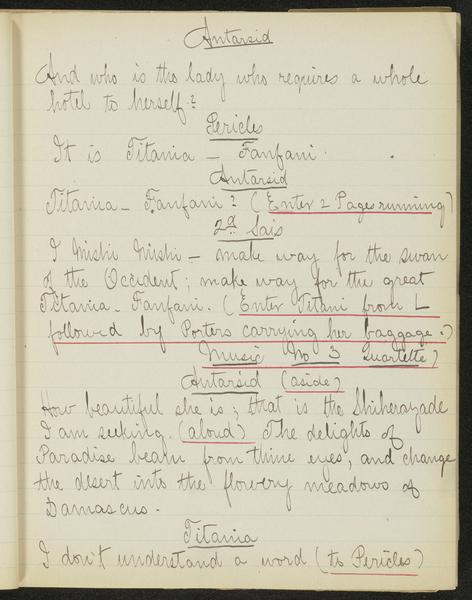 Antarsid
And who is the lady who requires a whole
hotel to herself?
Pericles
It is Titania - Fanfani.
Antarsid
Titania - Fanfani? (Enter 2 Pages running)
2d Sais
I Mishi Mishi - make way for the swan
of the Occident; make way for the great
Titania - Fanfani. (Enter Titani from L
followed by Porters carrying her baggage.)
Music No 3 Quartette)
Antarsid (aside)
How beautiful she is; that is the Sheherazade
I am seeking. (aloud) The delights of
Paradise beam from thine eyes, and change
the desert into the flowery meadows of
Damascus.
Titania
I don't understand a word (to Pericles)